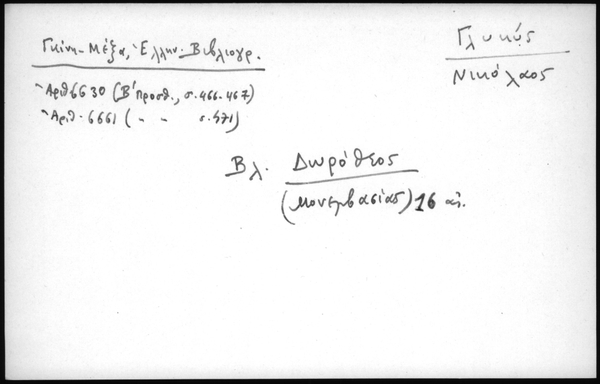 Γκίνη-Μέξα, Ἑλλην. Βιβλιογρ.
Γλυκύς
Νικόλαος
Ἀριθ. 6630 (Β' προσθ., σ. 466-467)
Ἀριθ. 6661 ( - - σ. 471)
Βλ. Δωρόθεος
(Μονεμβασίας) 16 αἰ.